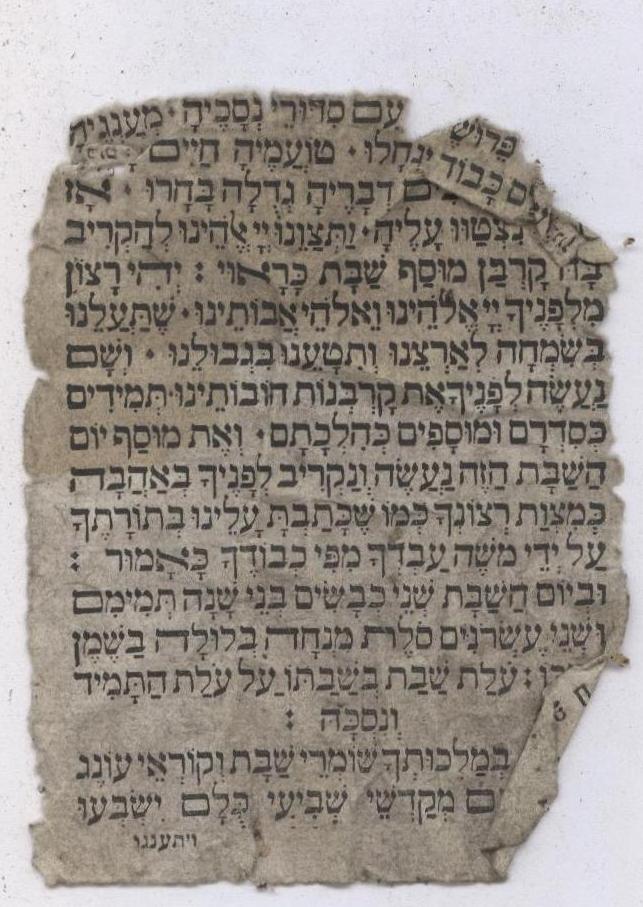 עִם סִדּוּרֵי נְסָכֶיהָ · מְעַנְּגֶיהָ
כָּבוֹד יִנְחָלוּ · טוֹעֲמֶיהָ חַיִּים
דְבָרֶיהָ גְדֻלָּה בָּחָרוּ · אָז
נִצְטַוּוּ עָלֶיהָ · וַתְּצַוֵּנוּ יְיָ אֱלֹהֵינוּ לְהַקְרִיב
בָּהּ קָרְבַּן מוּסַף שַׁבָּת כָּרָאוּי : יְהִי רָצוֹן
מִלְּפָנֶיךָ יְיָ אֱלֹהֵינוּ וֵאלֹהֵי אֲבוֹתֵינוּ · שֶׁתַּעֲלֵנוּ
בְשִׂמְחָה לְאַרְצֵנוּ וְתִטָּעֵנוּ בִּגְבוּלֵנוּ · וְשָׁם
נַעֲשֶׂה לְפָנֶיךָ אֶת קָרְבְּנוֹת חוֹבוֹתֵינוּ · תְּמִידִים
כְּסִדְרָם וּמוּסָפִים כְּהִלְכָתָם · וְאֶת מוּסַף יוֹם
הַשַּׁבָּת הַזֶּה נַעֲשֶׂה וְנַקְרִיב לְפָנֶיךָ בְּאַהֲבָה
כְּמִצְוַת רְצוֹנֶךָ כְּמוֹ שֶׁכָּתַבְתָּ עָלֵינוּ בְּתוֹרָתֶךָ
עַל יְדֵי מֹשֶׁה עַבְדֶּךָ מִפִּי כְבוֹדֶךָ כָּאָמוּר :
וּבְיוֹם הַשַּׁבָּת שְׁנֵי כְבָשִׂים בְּנֵי שָׁנָה תְּמִימִם
וּשְׁנֵי עֶשְׂרֹנִים סֹלֶת מִנְחָה בְּלוּלָה בַשֶּׁמֶן
: עֹלַת שַׁבַּת בְּשַׁבַּתּוֹ עַל עֹלַת הַתָּמִיד
וְנִסְכָּהּ :
בְמַלְכוּתְךָ שׁוֹמְרֵי שַׁבָּת וְקוֹרְאֵי עוֹנֶג
מְקַדְּשֵׁי שְׁבִיעִי כֻּלָּם יִשְׂבְּעוּ
ויתענגו